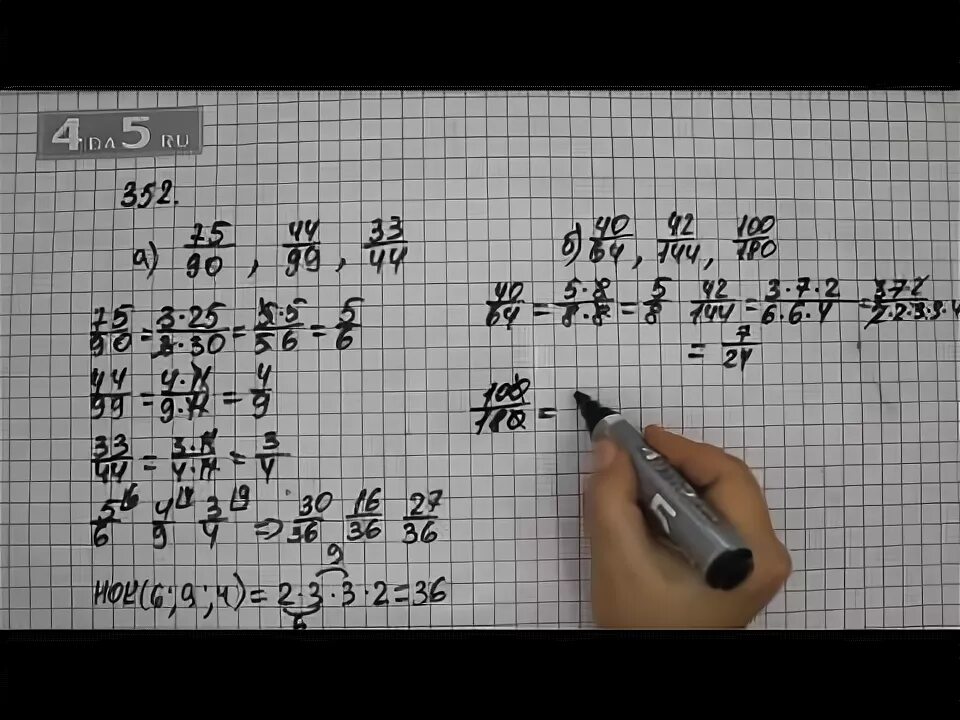 4 NA 5 RU
352.
а) 75/90, 44/99, 33/44
75/90 = 3·25/3·30 = 5·5/5 6 = 5/6
44/99 = 4·11/9·11 = 4/9
33/44 = 3·11/4·11 = 3/4
5/6 4/9 3/4 => 30/36 16/36 27/36
9
НОК(6;9;4) = 2·3·3·2 = 36
б) 40/64, 42/144, 100/180
40/64 = 5·8/8·8 = 5/8 42/144 = 3·7·2/6·6·4 = 3·7·2/2·2·3·3·4
= 7/24
100/180 =